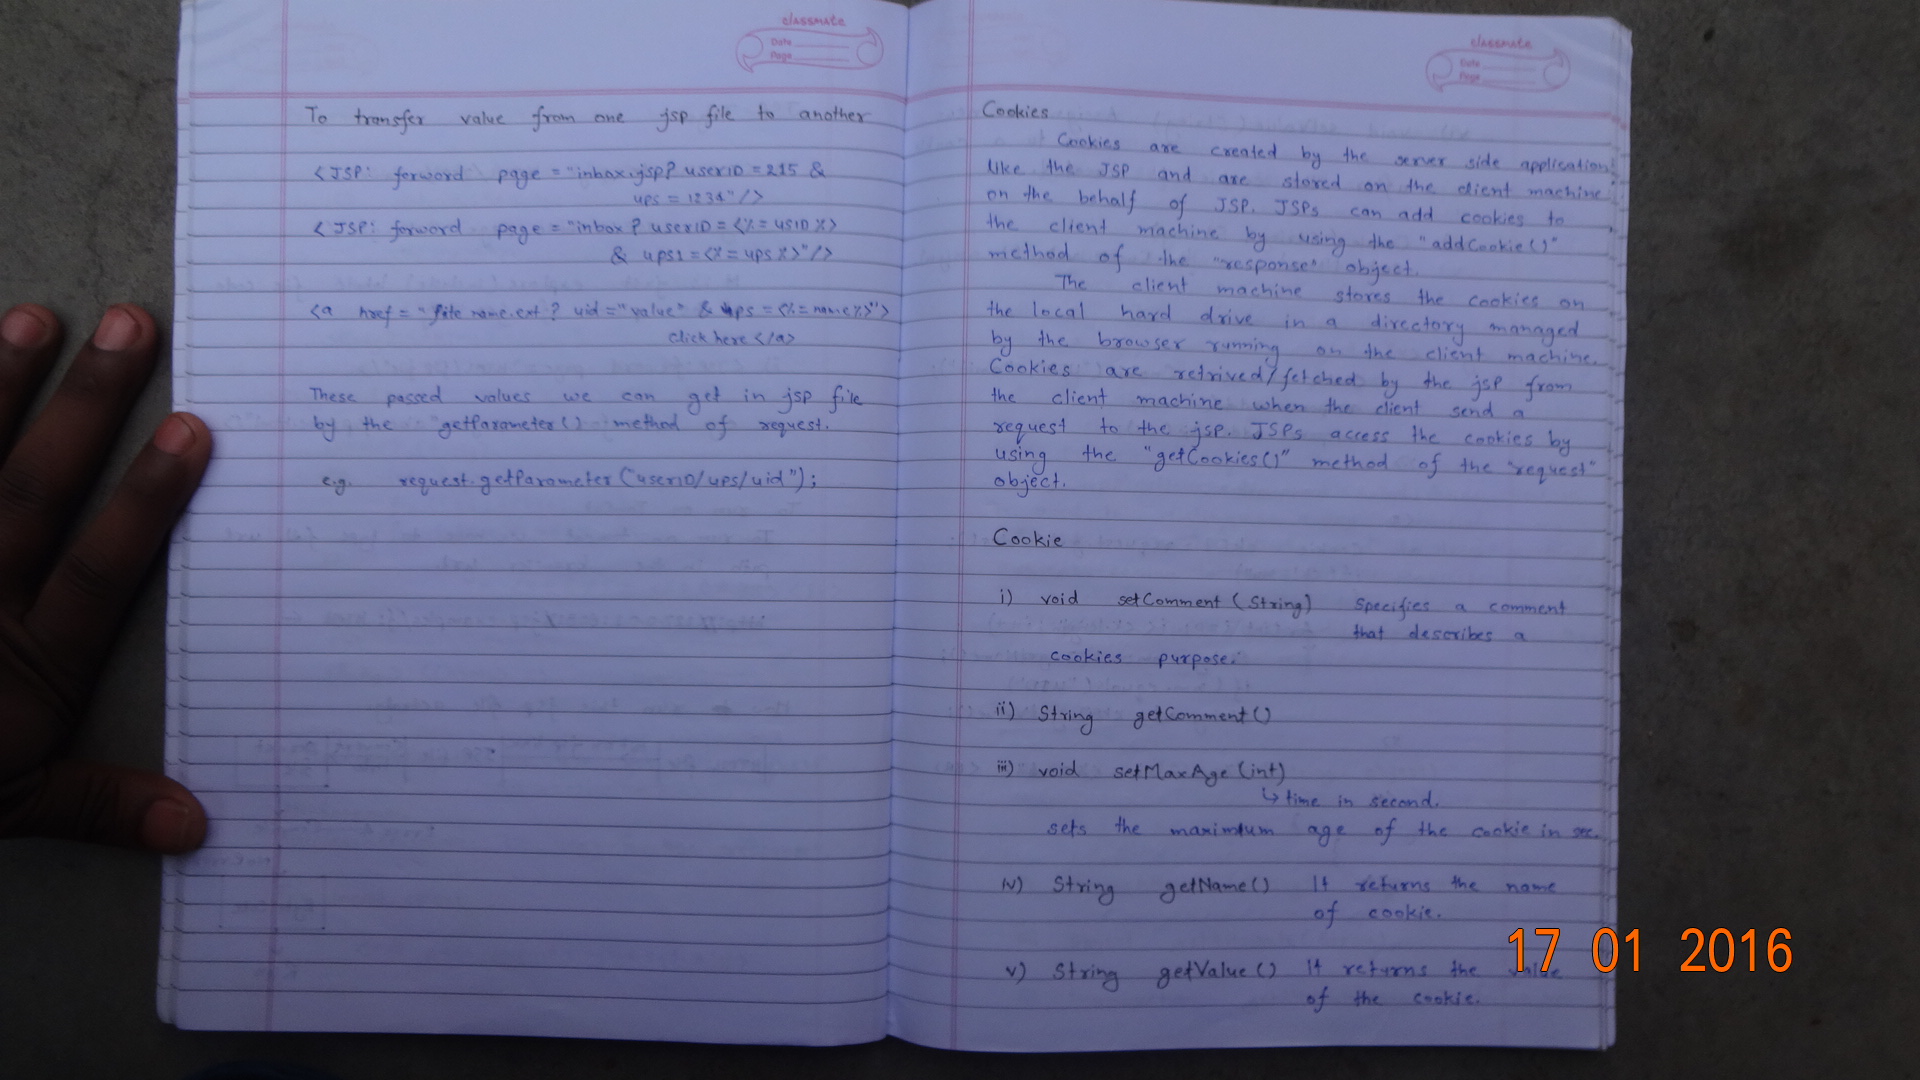 classmate
Date
Page
To transfer value from one jsp file to another
<JSP: forword page = "inbox.jsp? userID = 215 &
ups = 1234"/>
<JSP: forword page = "inbox ? userID = <%= usID %>
& ups1 = <%= ups %>"/>
<a href = "file name.ext ? uid = "value" & ups = <%= name %>">
click here </a>
These passed values we can get in jsp file
by the "getParameter() method of request.
e.g. request.getParameter ("userID/ups/uid");
classmate
Date
Page
Cookies
Cookies are created by the server side application
like the JSP and are stored on the client machine
on the behalf of JSP. JSPs can add cookies to
the client machine by using the "addCookie()"
method of the "response" object.
The client machine stores the cookies on
the local hard drive in a directory managed
by the browser running on the client machine.
Cookies are retrived/fetched by the jsp from
the client machine when the client send a
request to the jsp. JSPs access the cookies by
using the "getCookies()" method of the "request"
object.
Cookie
i) void setComment (String) Specifies a comment
that describes a
cookies purpose.
ii) String getComment ()
iii) void setMaxAge (int)
↳ time in second.
sets the maximum age of the cookie in sec.
iv) String getName () It returns the name
of cookie.
v) String getValue () It returns the value
of the cookie.
17 01 2016